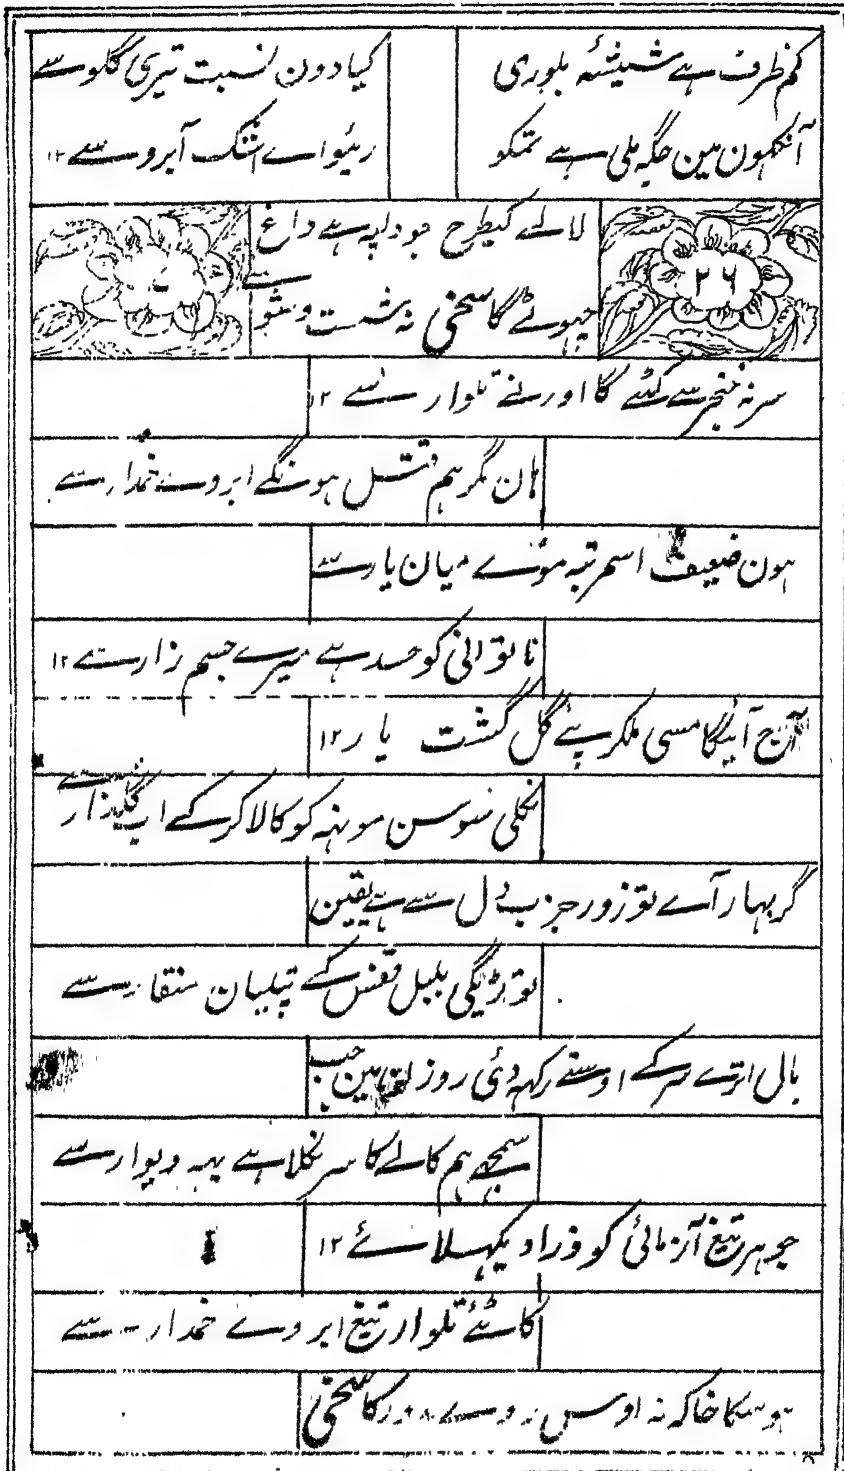 کم ظرف ہے شیشۂ بلوری
کیا دون نسبت تیری گلو سے
آنکھون مین جگہ ملی ہے تمکو
رہیو اے اشک آبرو سے ۱۲
لالے کیطرح جو دلپہ ہے داغ
چھوٹے گا سخی نہ شست و شو سے
۲۶
سر نہ خنجر سے کٹے گا اور نے تلوار سے ۱۲
ہان مگر ہم قتل ہونگے ابروے خمدار سے
ہون ضعیف اسمرتبہ موئے میان یار سے
ناتوانی کو حسد ہے میرے جسم زار سے ۱۲
آج آئیگا مسی ملکر پئے گل گشت یار ۱۲
نکلی سوسن مونہہ کو کالا کر کے اب گلزار سے
گر بہار آے تو زور جزب دل سے ہے یقین
توڑیگی بلبل قفس کے تیلیان منقار سے
بال اترے سر کے اوسنے رکہہ دئی روزن مین جب
سمجھے ہم کالے کا سر نکلا ہے یہہ دیوار سے
جوہر تیغ آزمائی کو ذرا دیکھلائے ۱۲
کاٹئے تلوار تیغ ابروے خمدار سے
ہو سکا خاکہ نہ اوس روے کا سخی